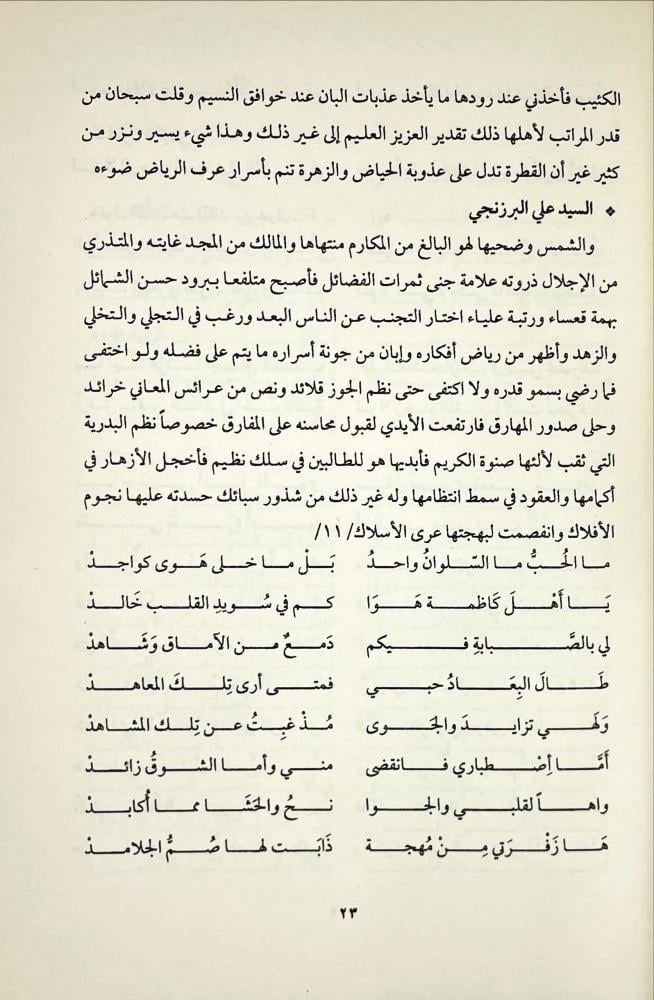 الكثيب فأخذني عند رودها ما يأخذ عذبات البان عند خوافق النسيم وقلت سبحان من
قدر المراتب لأهلها ذلك تقدير العزيز العليم إلى غير ذلك وهذا شيء يسير ونزر من
كثير غير أن القطرة تدل على عذوبة الحياض والزهرة تنم بأسرار عرف الرياض ضوءه
❖ السيد علي البرزنجي
والشمس وضحيها لهو البالغ من المكارم منتهاها والمالك من المجد غايته والمتذري
من الإجلال ذروته علامة جنى ثمرات الفضائل فأصبح متلفعا ببرود حسن الشمائل
بهمة قعساء ورتبة علياء اختار التجنب عن الناس البعد ورغب في التجلي والتخلي
والزهد وأظهر من رياض أفكاره وإبان من جونة أسراره ما يتم على فضله ولو اختفى
فما رضي بسمو قدره ولا اكتفى حتى نظم الجوز قلائد ونص من عرائس المعاني خرائد
وحلى صدور المهارق فارتفعت الأيدي لقبول محاسنه على المفارق خصوصاً نظم البدرية
التي ثقب لألئها صنوة الكريم فأبديها هو للطالبين في سلك نظيم فأخجل الأزهار في
أكمامها والعقود في سمط انتظامها وله غير ذلك من شذور سبائك حسدته عليها نجوم
الأفلاك وانفصمت لبهجتها عرى الأسلاك/ ١١/
ما الحُبُّ ما السّلوانُ واحدُ بَلْ ما خلى هَوى كواجدْ
يَا أَهْلَ كَاظمة هَوَا كم في سُويدِ القلب خَالدْ
لي بالصَّبابةِ فيكم دَمعٌ من الآماق وَشَاهدْ
طَالَ البِعَادُ حبي فمتى أرى تِلكَ المعاهدْ
وَلَهي تزايدَ والجَوى مُذْ غبِتُ عن تِلك المشاهدْ
أمَّا إصْطباري فانقضى مني وأما الشوقُ زائدْ
واهاً لقلبي والجوا نحُ والحَشَا مما أُكابدْ
هَا زَفْرَتي مِنْ مُهجة ذَابَت لها صُمُّ الجلامدْ
٢٣